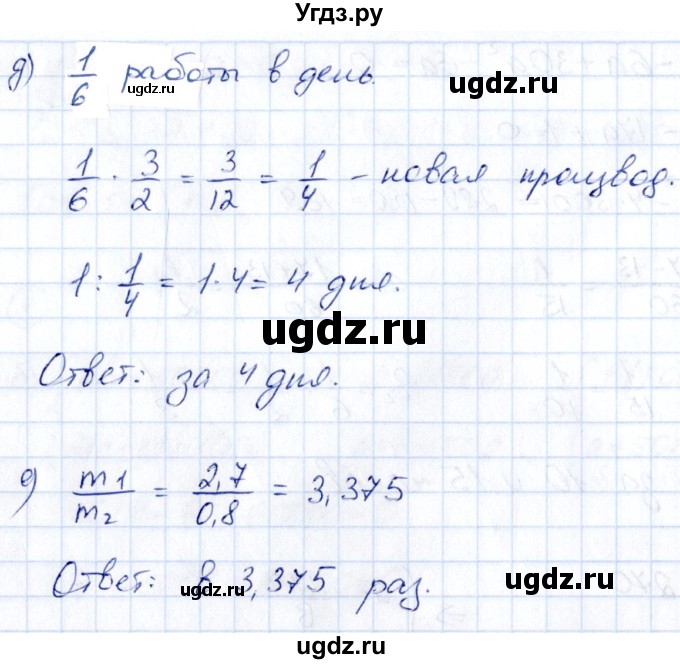 Угдз.ру
д) 1/6 работы в день.
1/6 · 3/2 = 3/12 = 1/4 - новая производ.
1 : 1/4 = 1 · 4 = 4 дня.
Ответ: за 4 дня.
е) m1/m2 = 2,7/0,8 = 3,375
Ответ: в 3,375 раз.
ugdz.ru
ugdz.ru
ugdz.ru
ugdz.ru
ugdz.ru
ugdz.ru
ugdz.ru
ugdz.ru
ugdz.ru